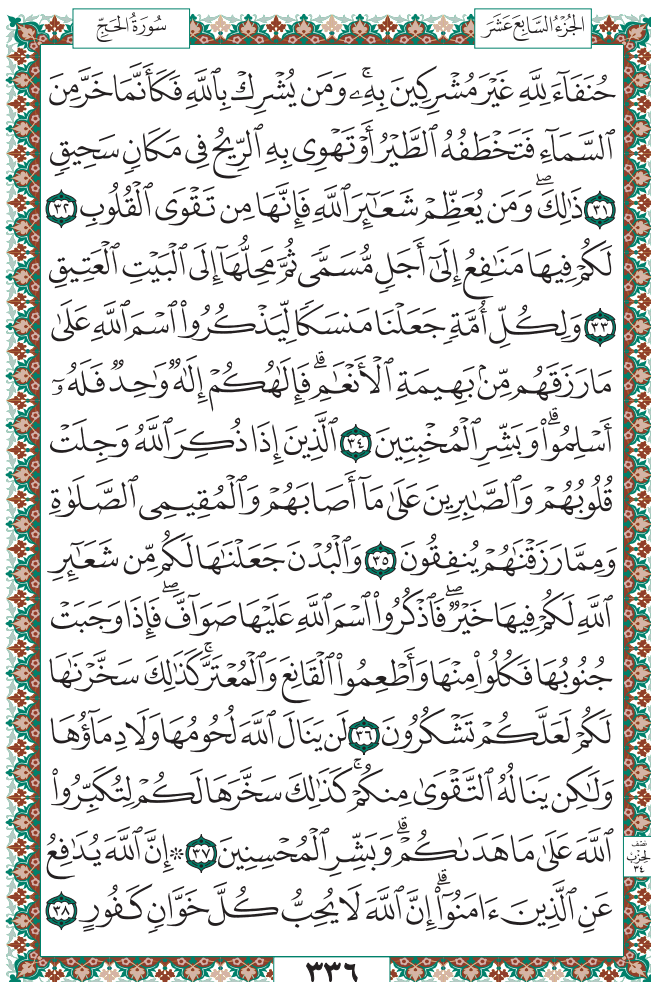 سُورَةُ الحَجِّ
الجُزْءُ السَّابِعَ عَشَرَ
حُنَفَآءَ لِلَّهِ غَيْرَ مُشْرِكِينَ بِهِۦۚ وَمَن يُشْرِكْ بِٱللَّهِ فَكَأَنَّمَا خَرَّ مِنَ
ٱلسَّمَآءِ فَتَخْطَفُهُ ٱلطَّيْرُ أَوْ تَهْوِى بِهِ ٱلرِّيحُ فِى مَكَانٍ سَحِيقٍ
٣١ ذَٰلِكَۖ وَمَن يُعَظِّمْ شَعَٰٓئِرَ ٱللَّهِ فَإِنَّهَا مِن تَقْوَى ٱلْقُلُوبِ ٣٢
لَكُمْ فِيهَا مَنَٰفِعُ إِلَىٰٓ أَجَلٍ مُّسَمًّى ثُمَّ مَحِلُّهَآ إِلَى ٱلْبَيْتِ ٱلْعَتِيقِ
٣٣ وَلِكُلِّ أُمَّةٍ جَعَلْنَا مَنسَكًا لِّيَذْكُرُوا۟ ٱسْمَ ٱللَّهِ عَلَىٰ
مَا رَزَقَهُم مِّنۢ بَهِيمَةِ ٱلْأَنْعَٰمِۗ فَإِلَٰهُكُمْ إِلَٰهٌ وَٰحِدٌ فَلَهُۥٓ
أَسْلِمُوا۟ۗ وَبَشِّرِ ٱلْمُخْبِتِينَ ٣٤ ٱلَّذِينَ إِذَا ذُكِرَ ٱللَّهُ وَجِلَتْ
قُلُوبُهُمْ وَٱلصَّٰبِرِينَ عَلَىٰ مَآ أَصَابَهُمْ وَٱلْمُقِيمِى ٱلصَّلَوٰةِ
وَمِمَّا رَزَقْنَٰهُمْ يُنفِقُونَ ٣٥ وَٱلْبُدْنَ جَعَلْنَٰهَا لَكُم مِّن شَعَٰٓئِرِ
ٱللَّهِ لَكُمْ فِيهَا خَيْرٌۖ فَٱذْكُرُوا۟ ٱسْمَ ٱللَّهِ عَلَيْهَا صَوَآفَّۖ فَإِذَا وَجَبَتْ
جُنُوبُهَا فَكُلُوا۟ مِنْهَا وَأَطْعِمُوا۟ ٱلْقَانِعَ وَٱلْمُعْتَرَّۚ كَذَٰلِكَ سَخَّرْنَٰهَا
لَكُمْ لَعَلَّكُمْ تَشْكُرُونَ ٣٦ لَن يَنَالَ ٱللَّهَ لُحُومُهَا وَلَا دِمَآؤُهَا
وَلَٰكِن يَنَالُهُ ٱلتَّقْوَىٰ مِنكُمْۚ كَذَٰلِكَ سَخَّرَهَا لَكُمْ لِتُكَبِّرُوا۟
ٱللَّهَ عَلَىٰ مَا هَدَىٰكُمْۗ وَبَشِّرِ ٱلْمُحْسِنِينَ ٣٧ ۞ إِنَّ ٱللَّهَ يُدَٰفِعُ
نصف
الحزب
٣٤
عَنِ ٱلَّذِينَ ءَامَنُوٓا۟ۗ إِنَّ ٱللَّهَ لَا يُحِبُّ كُلَّ خَوَّانٍ كَفُورٍ ٣٨
٣٣٦